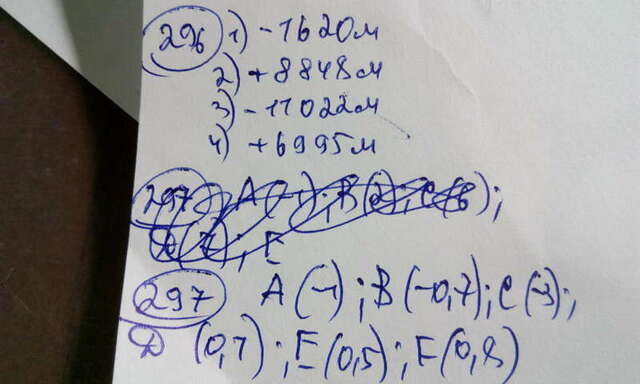 296 1) -1620м
2) +8848м
3) -11022м
4) +6995м
297 A(-1); B(2); C(6);
D(7); E
297 A(-1); B(-0,7); C(-3);
D (0,7); E(0,5); F(0,8)